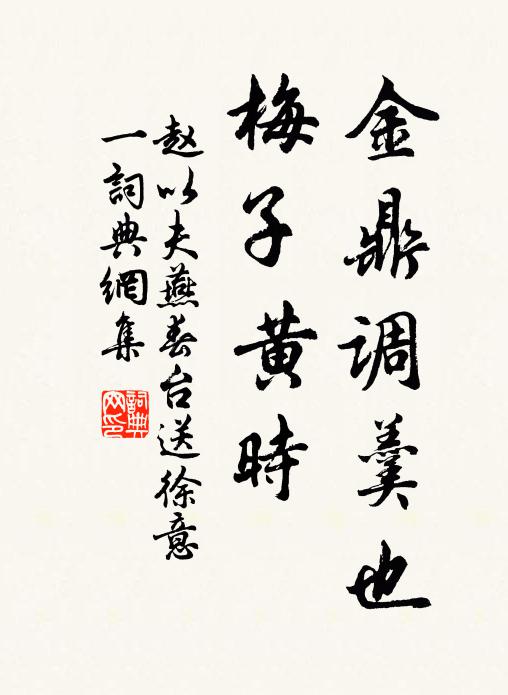 金鼎调羹也
梅子黄時
赵以夫燕春台送徐意
一詞典網集
詞典
网印